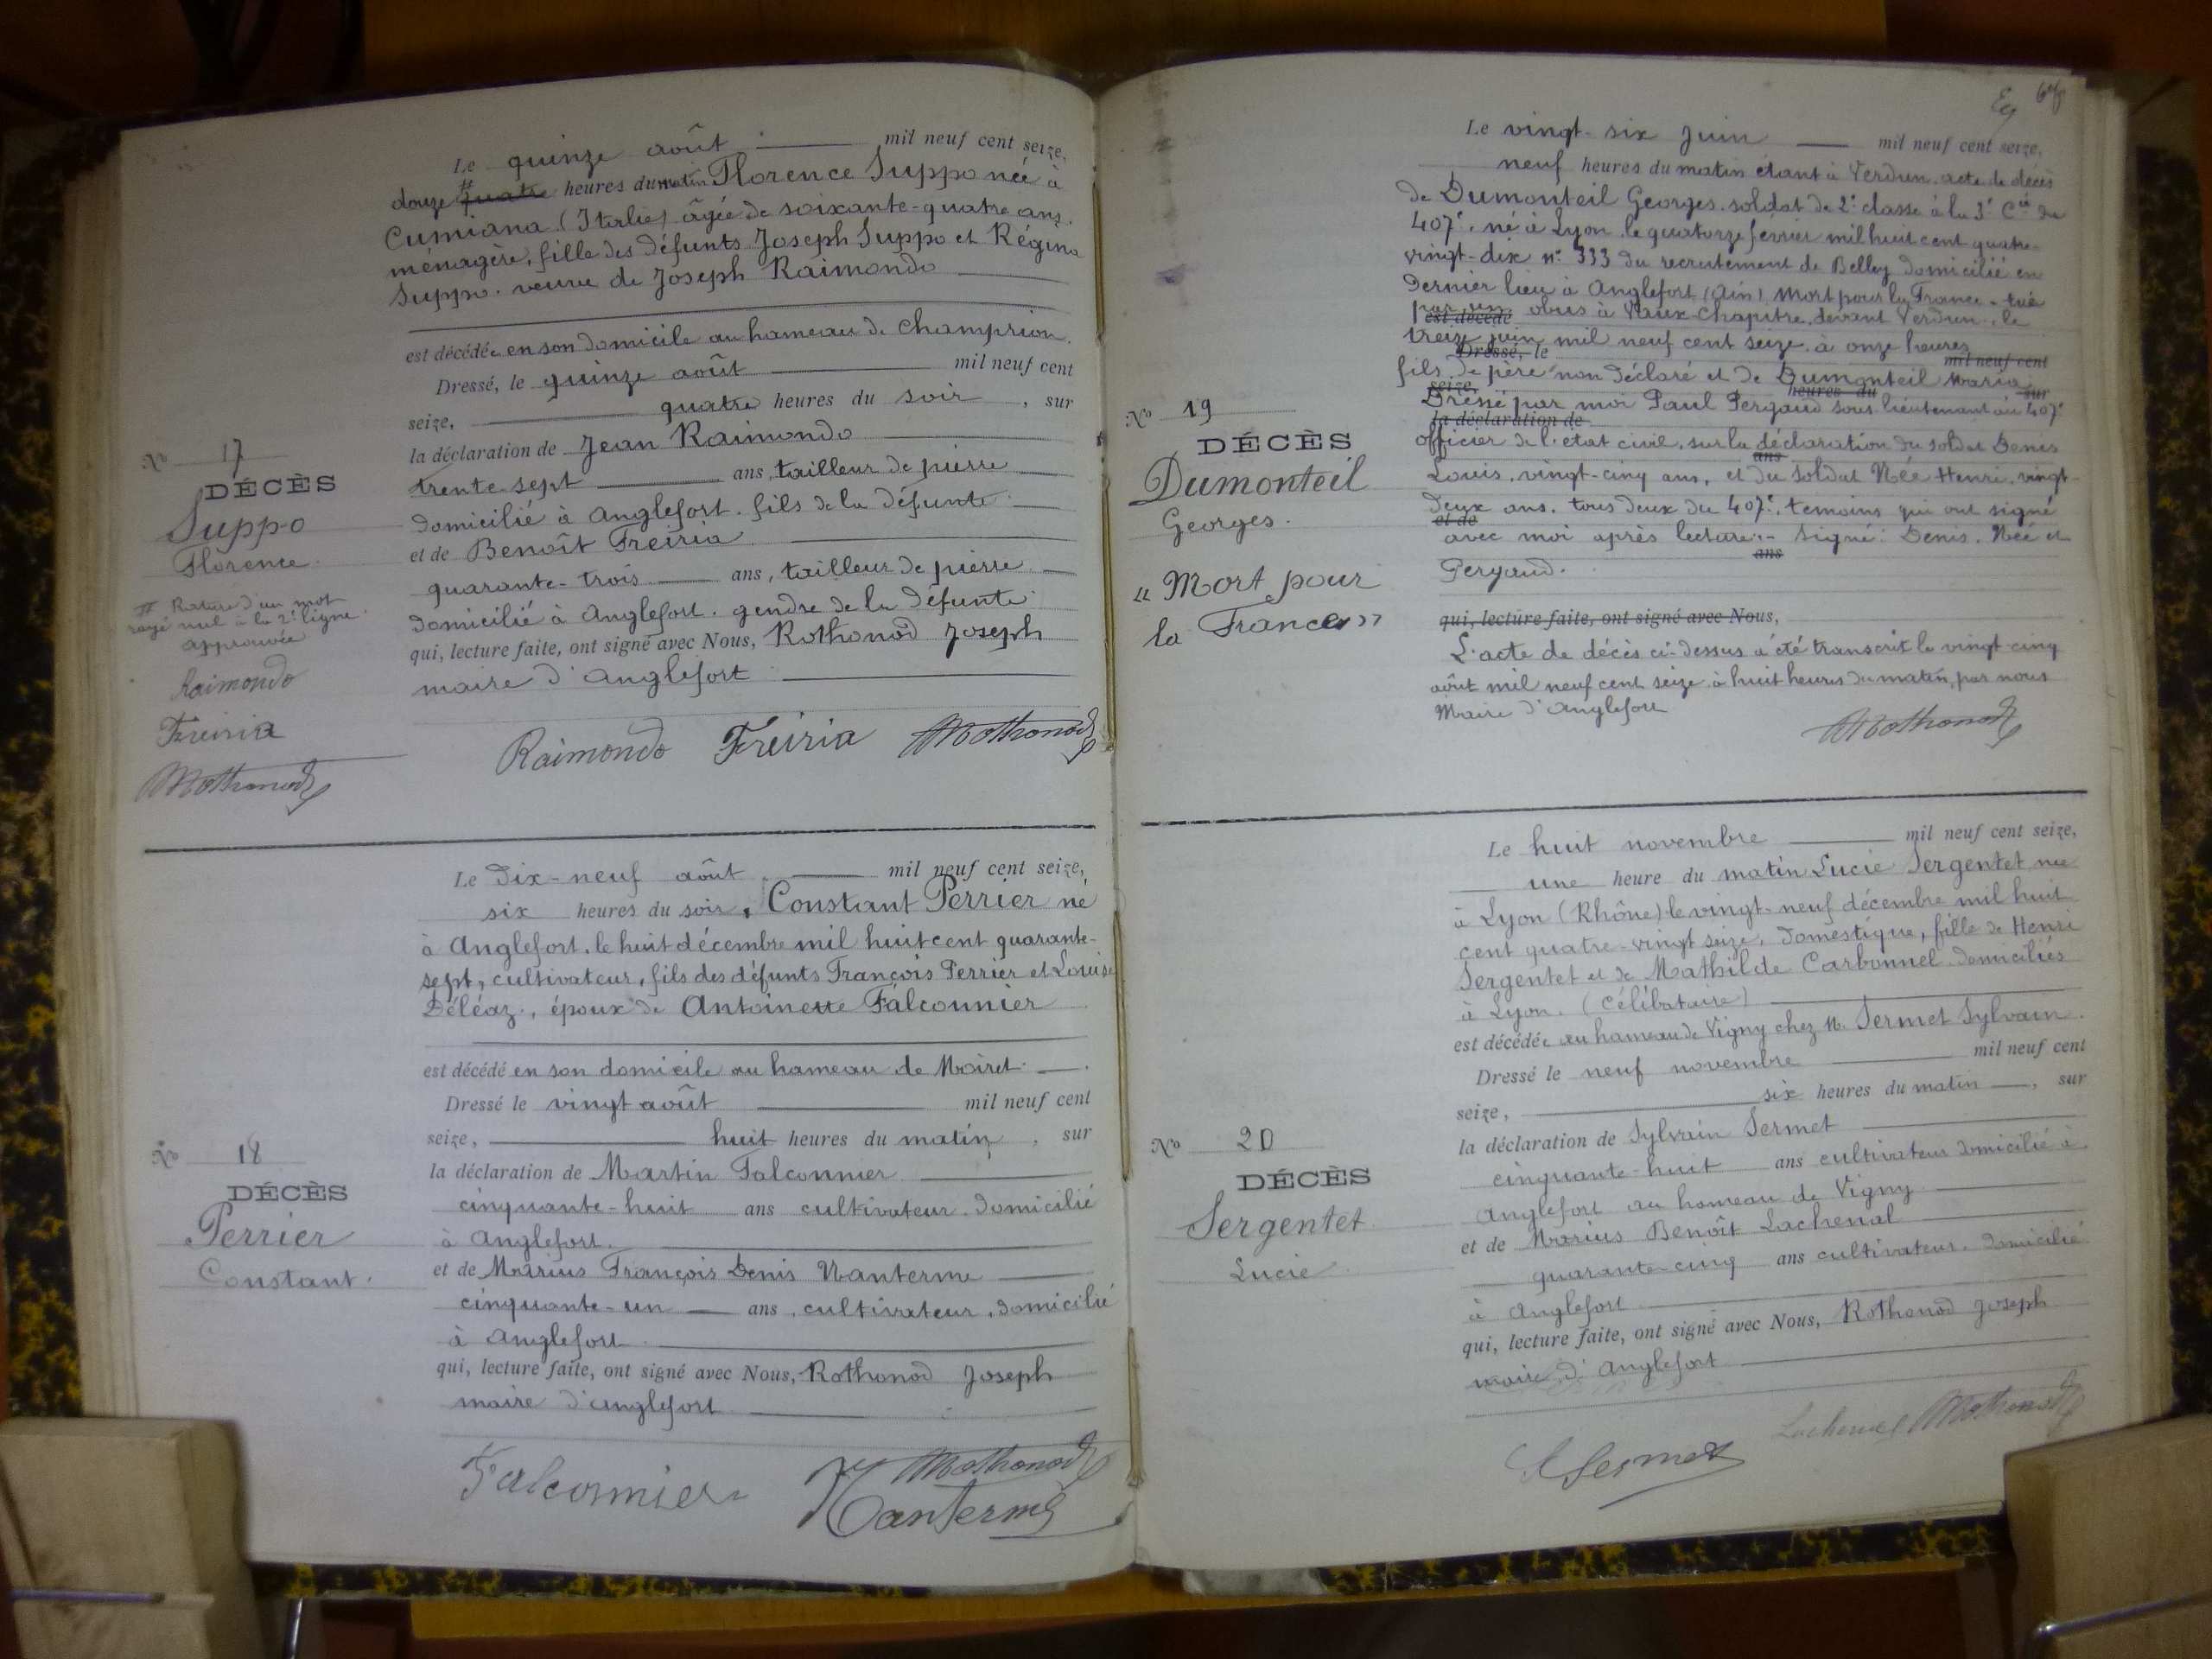 Le quinze août mil neuf cent seize,
douze quatre heures du matin Florence Suppo née à
Cumiana (Italie) âgée de soixante-quatre ans.
ménagère, fille des défunts Joseph Suppo et Régina
Suppo. veuve de Joseph Raimondo
est décédée en son domicile au hameau de Champrion.
Dressé, le quinze août mil neuf cent
seize, quatre heures du soir, sur
la déclaration de Jean Raimondo
trente sept ans, tailleur de pierre
domicilié à Anglefort. fils de la défunte
et de Benoît Freiria
quarante-trois ans, tailleur de pierre
domicilié à Anglefort. gendre de la défunte
qui, lecture faite, ont signé avec Nous, Rothonod Joseph
maire d'Anglefort
Raimondo Freiria Rothonod
No 17
DÉCÈS
Suppo
Florence.
# Rature d'un mot
rayé nul à la 2e ligne
approuvée
Raimondo
Freiria
Rothonod
Le Dix-neuf août mil neuf cent seize,
six heures du soir, Constant Perrier né
à Anglefort. le huit décembre mil huit cent quarante-
sept, cultivateur, fils des défunts François Perrier et Louise
Déléaz., époux de Antoinette Falconnier
est décédé en son domicile au hameau de Moiret.
Dressé le vingt août mil neuf cent
seize, huit heures du matin, sur
la déclaration de Martin Falconnier
cinquante-huit ans cultivateur. domicilié
à Anglefort.
et de Marius François Denis Nanterme
cinquante-un ans, cultivateur, domicilié
à Anglefort
qui, lecture faite, ont signé avec Nous, Rothonod Joseph
maire d'Anglefort
Falconnier Rothonod
Nanterme
No 18
DÉCÈS
Perrier
Constant.
Le vingt-six Juin mil neuf cent seize,
neuf heures du matin étant à Verdun. acte de décès
de Dumonteil Georges. soldat de 2e classe à la 3e Cie du
407e. né à Lyon le quatorze février mil huit cent quatre-
vingt-dix n° 333 du recrutement de Belley domicilié en
dernier lieu à Anglefort (Ain) Mort pour la France - tué
par un obus à Vaux-Chapitre, devant Verdun, le
est décédé
treize juin mil neuf cent seize. à onze heures
Dressé, le mil neuf cent
fils de père non déclaré et de Dumonteil Maria
seize, heures du sur
Dressé par moi Paul Pergaud sous lieutenant au 407e
la déclaration de
officier de l'état civil. sur la déclaration du soldat Denis
ans
Louis. vingt-cinq ans, et du soldat Née Henri. vingt-
deux ans. tous deux du 407e. témoins qui ont signé
et de
avec moi après lecture.- Signé: Denis. Née et
ans
Pergaud.
qui, lecture faite, ont signé avec Nous,
L'acte de décès ci-dessus a été transcrit le vingt-cinq
août mil neuf cent seize à huit heures du matin, par nous
Maire d'Anglefort
Rothonod
No 19
DÉCÈS
Dumonteil
Georges.
« Mort pour
la France »
Le huit novembre mil neuf cent seize,
une heure du matin Lucie Sergentet née
à Lyon (Rhône) le vingt-neuf décembre mil huit
cent quatre-vingt seize, domestique, fille de Henri
Sergentet et de Mathilde Carbonnel domiciliés
à Lyon. (célibataire)
est décédée au hameau de Vigny chez M. Sermet Sylvain.
Dressé le neuf novembre mil neuf cent
seize, six heures du matin, sur
la déclaration de Sylvain Sermet
cinquante-huit ans cultivateur domicilié à
Anglefort au hameau de Vigny
et de Marius Benoît Lachenal
quarante-cinq ans cultivateur. domicilié
à Anglefort
qui, lecture faite, ont signé avec Nous, Rothonod Joseph
maire d'Anglefort
S Sermet Lachenal Rothonod
No 20
DÉCÈS
Sergentet
Lucie